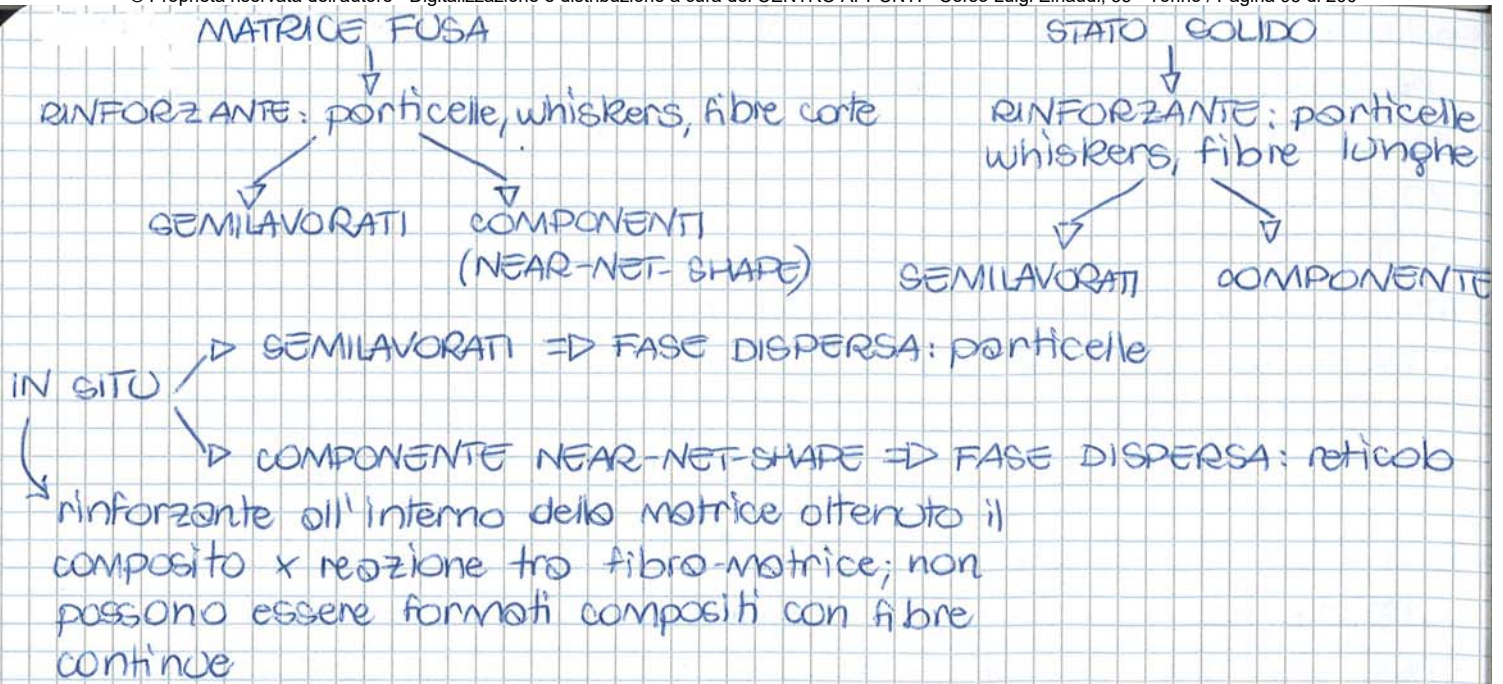 MATRICE FUSA
RINFORZANTE: particelle, whiskers, fibre corte
SEMILAVORATI COMPONENTI
(NEAR-NET-SHAPE)
STATO SOLIDO
RINFORZANTE: particelle
whiskers, fibre lunghe
SEMILAVORATI COMPONENTE
IN SITU
SEMILAVORATI => FASE DISPERSA: particelle
COMPONENTE NEAR-NET-SHAPE => FASE DISPERSA: reticolo
rinforzante all'interno della matrice ottenuto il
composito x reazione tra fibra-matrice; non
possono essere formati compositi con fibre
continue